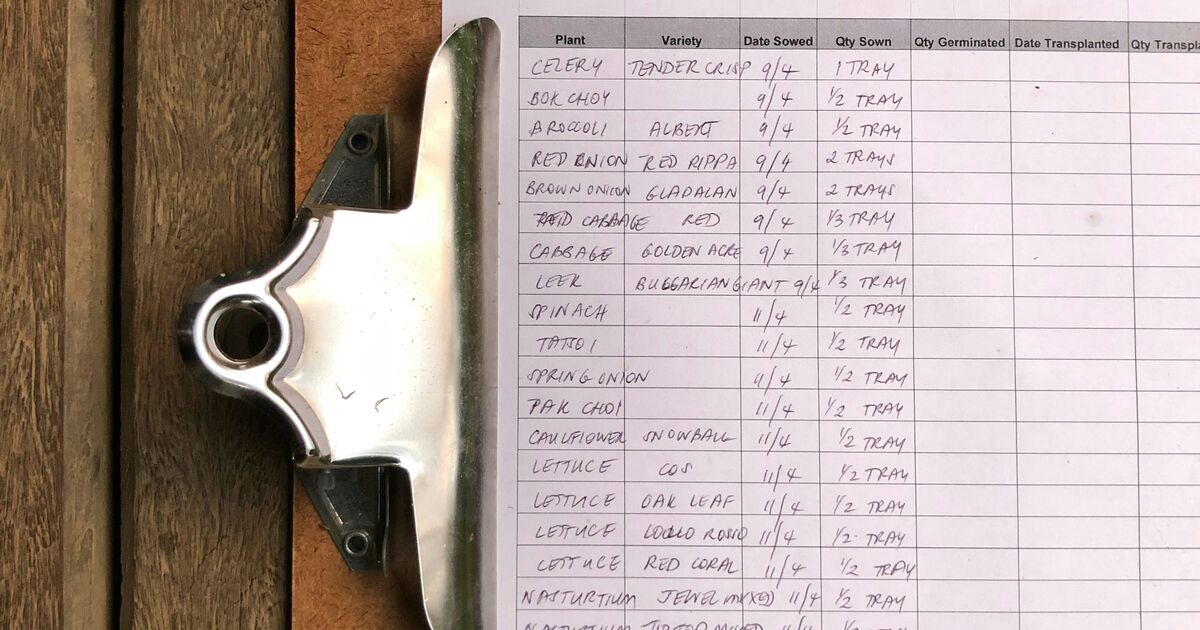 Plant Variety Date Sowed Qty Sown Qty Germinated Date Transplanted Qty Transpla
CELERY TENDER CRISP 9/4 1 TRAY
BOK CHOY 9/4 1/2 TRAY
BROCCOLI ALBERT 9/4 1/2 TRAY
RED ONION RED RIPPA 9/4 2 TRAYS
BROWN ONION GLADALAN 9/4 2 TRAYS
RED CABBAGE RED 9/4 1/3 TRAY
CABBAGE GOLDEN ACRE 9/4 1/3 TRAY
LEEK BULGARIAN GIANT 9/4 1/3 TRAY
SPINACH 11/4 1/2 TRAY
TATSOI 11/4 1/2 TRAY
SPRING ONION 11/4 1/2 TRAY
PAK CHOI 11/4 1/2 TRAY
CAULIFLOWER SNOWBALL 11/4 1/2 TRAY
LETTUCE COS 11/4 1/2 TRAY
LETTUCE OAK LEAF 11/4 1/2 TRAY
LETTUCE LOLLO ROSSO 11/4 1/2 TRAY
LETTUCE RED CORAL 11/4 1/2 TRAY
NASTURTIUM JEWEL MIXED 11/4 1/2 TRAY
NASTURTIUM TIP TOP MIXED 11/4 1/2 TRAY